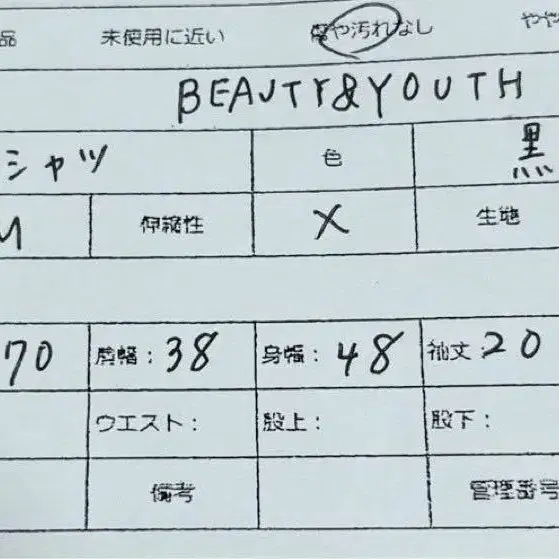 品 未使用に近い 傷や汚れなし やや
BEAUTY&YOUTH
シャツ 色 黒
M 伸縮性 × 生地
70 肩幅：38 身幅：48 袖丈：20
ウエスト： 股上： 股下：
備考 管理番号